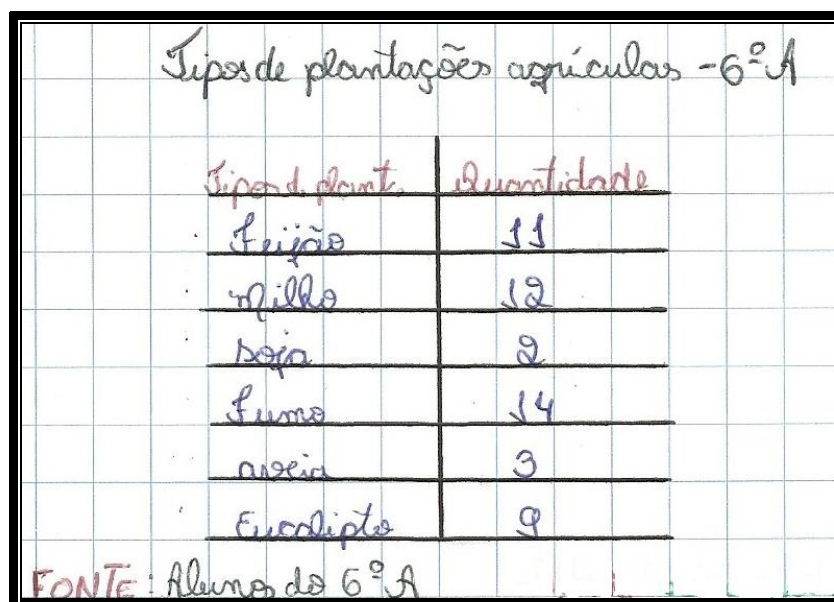 Tipos de plantações agrículas - 6º A
Tipos d. plant. Quantidade
Feijão 11
milho 12
soja 2
Fumo 14
aveia 3
Eucalipto 9
FONTE: Alunos do 6º A